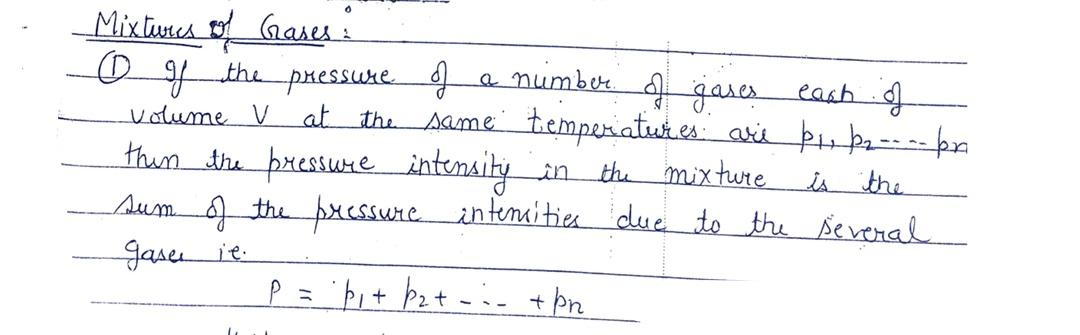 Mixtures of Gases :
① If the pressure of a number of gases each of
volume V at the same temperatures are p1, p2----pn
then the pressure intensity in the mixture is the
sum of the pressure intensities due to the several
gases ie.
P = p1 + p2 + --- + pn